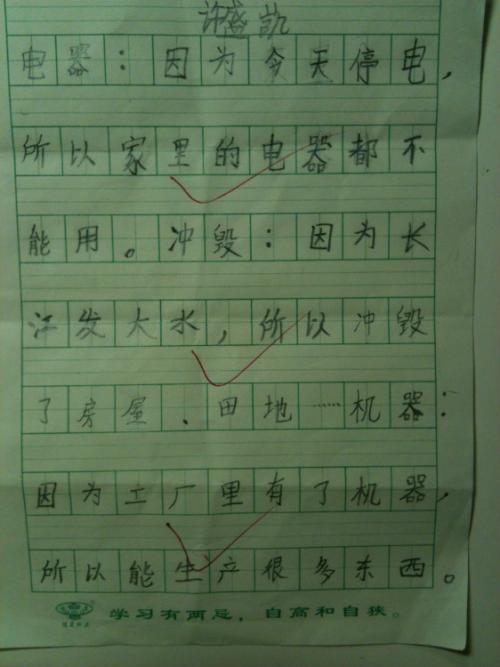 许盛凯
电器：因为今天停电，
所以家里的电器都不
能用。冲毁：因为长
江发大水，所以冲毁
了房屋、田地……机器：
因为工厂里有了机器，
所以能生产很多东西。
学习有两忌，自高和自狭。